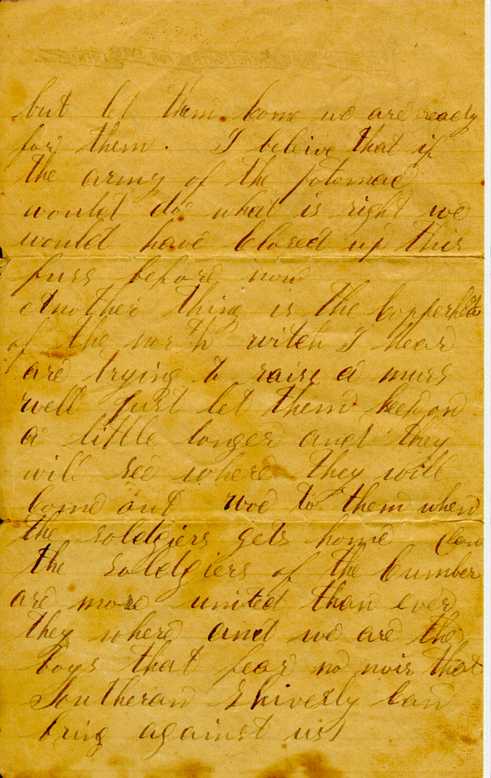 but let them come we are ready
for them. I beleive that if
the army of the potomac
would do what is right we
would have closed up this
fuss before now
Another thing is the Copperheads
of the north witch I hear
are trying to raise a muss
well just let them keep on
a little longer and they
will see where they will
come out woe to them when
the soldgiers gets home
the soldgiers of the Cumber
are more united than ever
they where and we are the
boys that fear no noir that
Southeran Shiverly can
bring against us